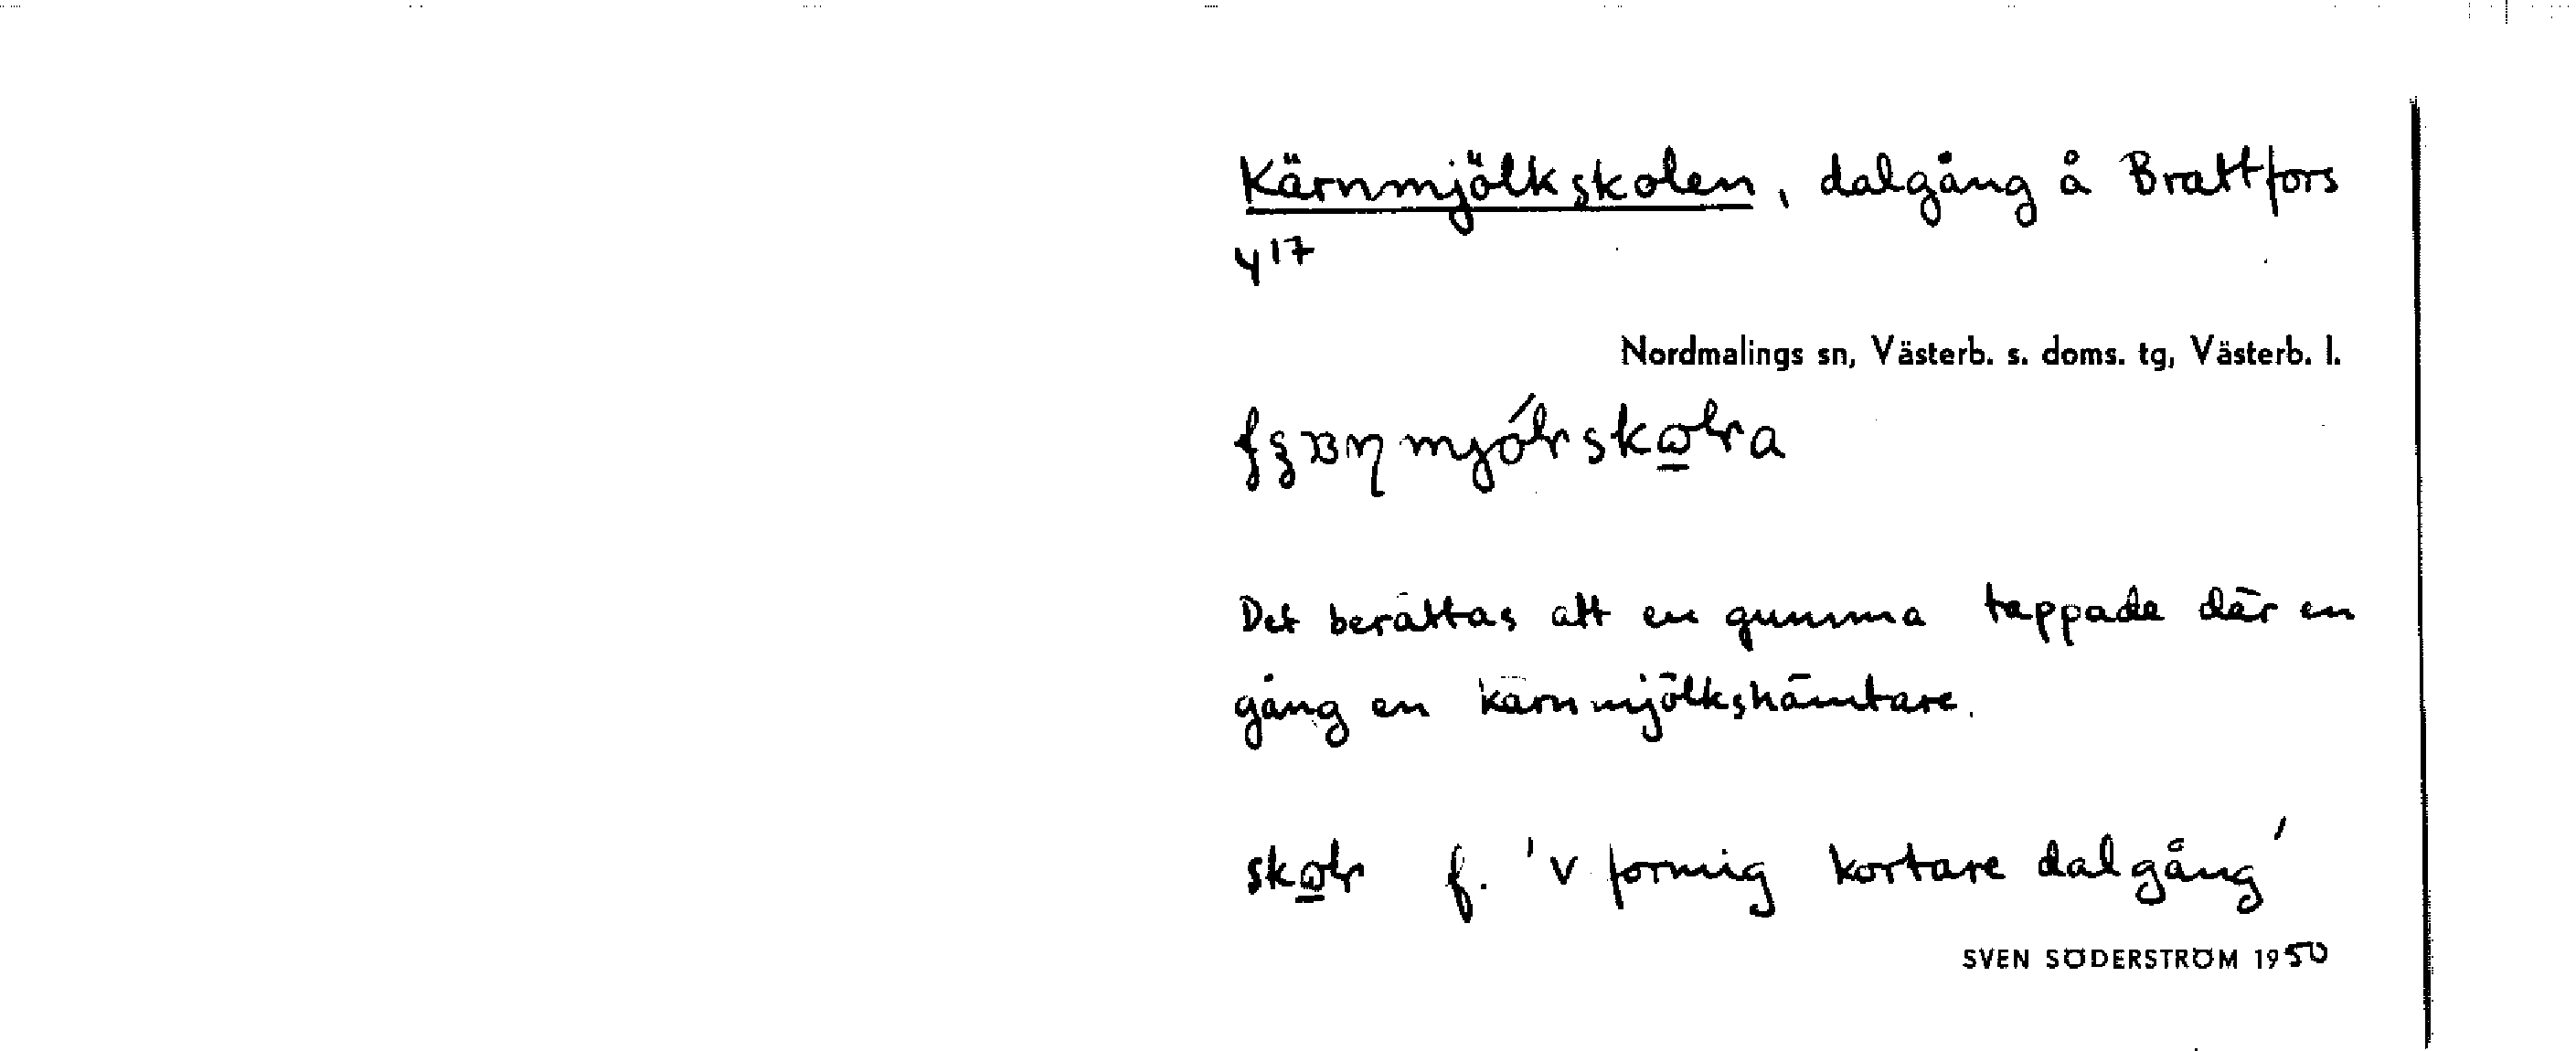 Kärnmjölkskolen, dalgång å Brattfors
4¹⁷
Nordmalings sn, Västerb. s. doms. tg, Västerb. l.
Det berättas att en gumma tappade där en
gång en kärnmjölkshämtare.
f. 'v formig kortare dalgång'
SVEN SÖDERSTRÖM 1950